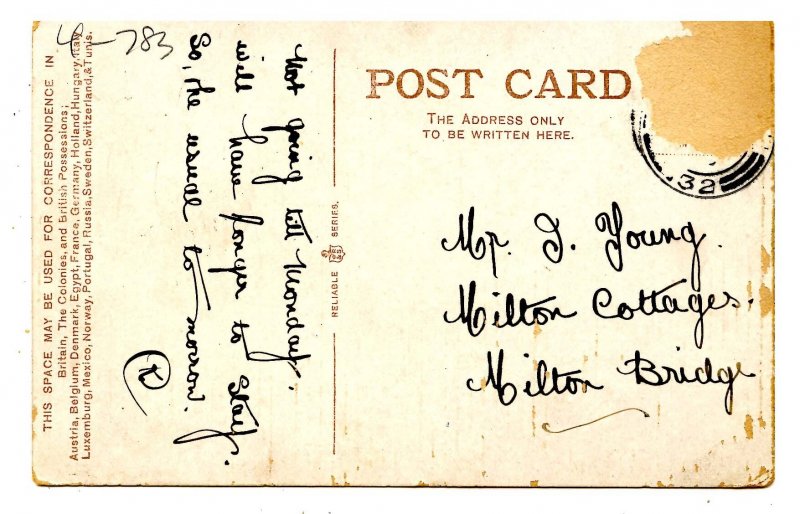 4-783
THIS SPACE MAY BE USED FOR CORRESPONDENCE IN
Britain, The Colonies, and British Possessions;
Austria, Belgium, Denmark, Egypt, France, Germany, Holland, Hungary, Italy
Luxemburg, Mexico, Norway, Portugal, Russia, Sweden, Switzerland, & Tunis.
Not going till Monday.
will have longer to stay.
So, the usual to morrow.
RELIABLE SERIES.
POST CARD
THE ADDRESS ONLY
TO BE WRITTEN HERE.
32
Mr. J. Young.
Milton Cottages.
Milton Bridge